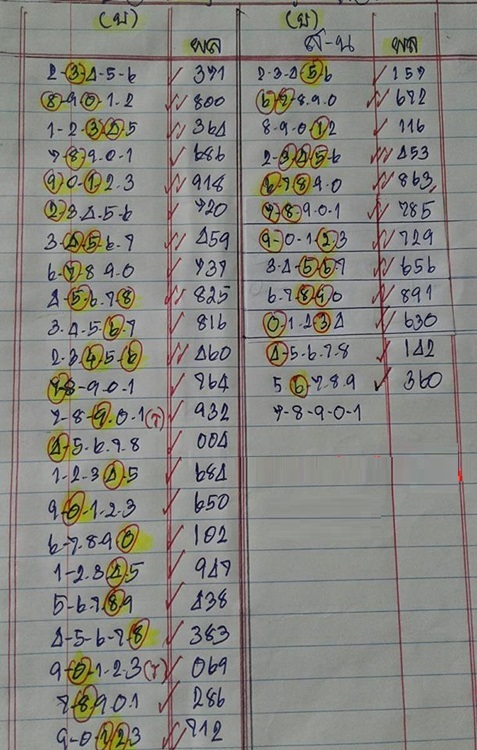 (บ) (บ)
ผล ส-น ผล
2-3-4-5-6 371 2-3-4-5-6 157
8-9-0-1-2 800 6-7-8-9-0 672
1-2-3-4-5 364 8-9-0-1-2 116
7-8-9-0-1 686 2-3-4-5-6 453
9-0-1-2-3 918 6-7-8-9-0 863
2-3-4-5-6 720 7-8-9-0-1 785
3-4-5-6-7 459 9-0-1-2-3 729
6-7-8-9-0 737 3-4-5-6-7 656
4-5-6-7-8 825 6-7-8-9-0 891
3-4-5-6-7 816 0-1-2-3-4 630
2-3-4-5-6 460 4-5-6-7-8 142
7-8-9-0-1 764 5-6-7-8-9 360
7-8-9-0-1(7) 932 7-8-9-0-1
4-5-6-7-8 004
1-2-3-4-5 684
9-0-1-2-3 650
6-7-8-9-0 102
1-2-3-4-5 947
5-6-7-8-9 438
4-5-6-7-8 383
9-0-1-2-3(7) 069
7-8-9-0-1 286
9-0-1-2-3 912